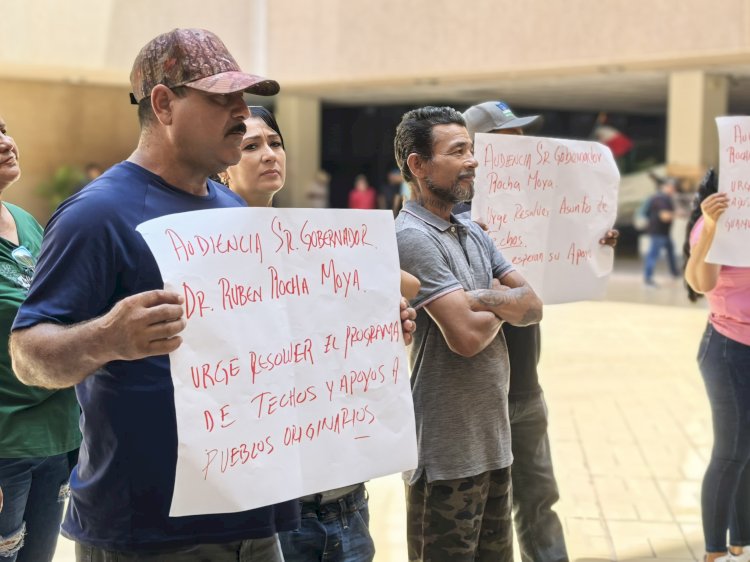 AUDIENCIA SR. GOBERNADOR.
DR. RUBEN ROCHA MOYA.
URGE RESOLVER EL PROGRAMA
DE TECHOS Y APOYOS A
PUEBLOS ORIGINARIOS
AUDIENCIA SR. GOBERNADOR
ROCHA MOYA.
URGE RESOLVER ASUNTO DE
ESPERAN SU APOY